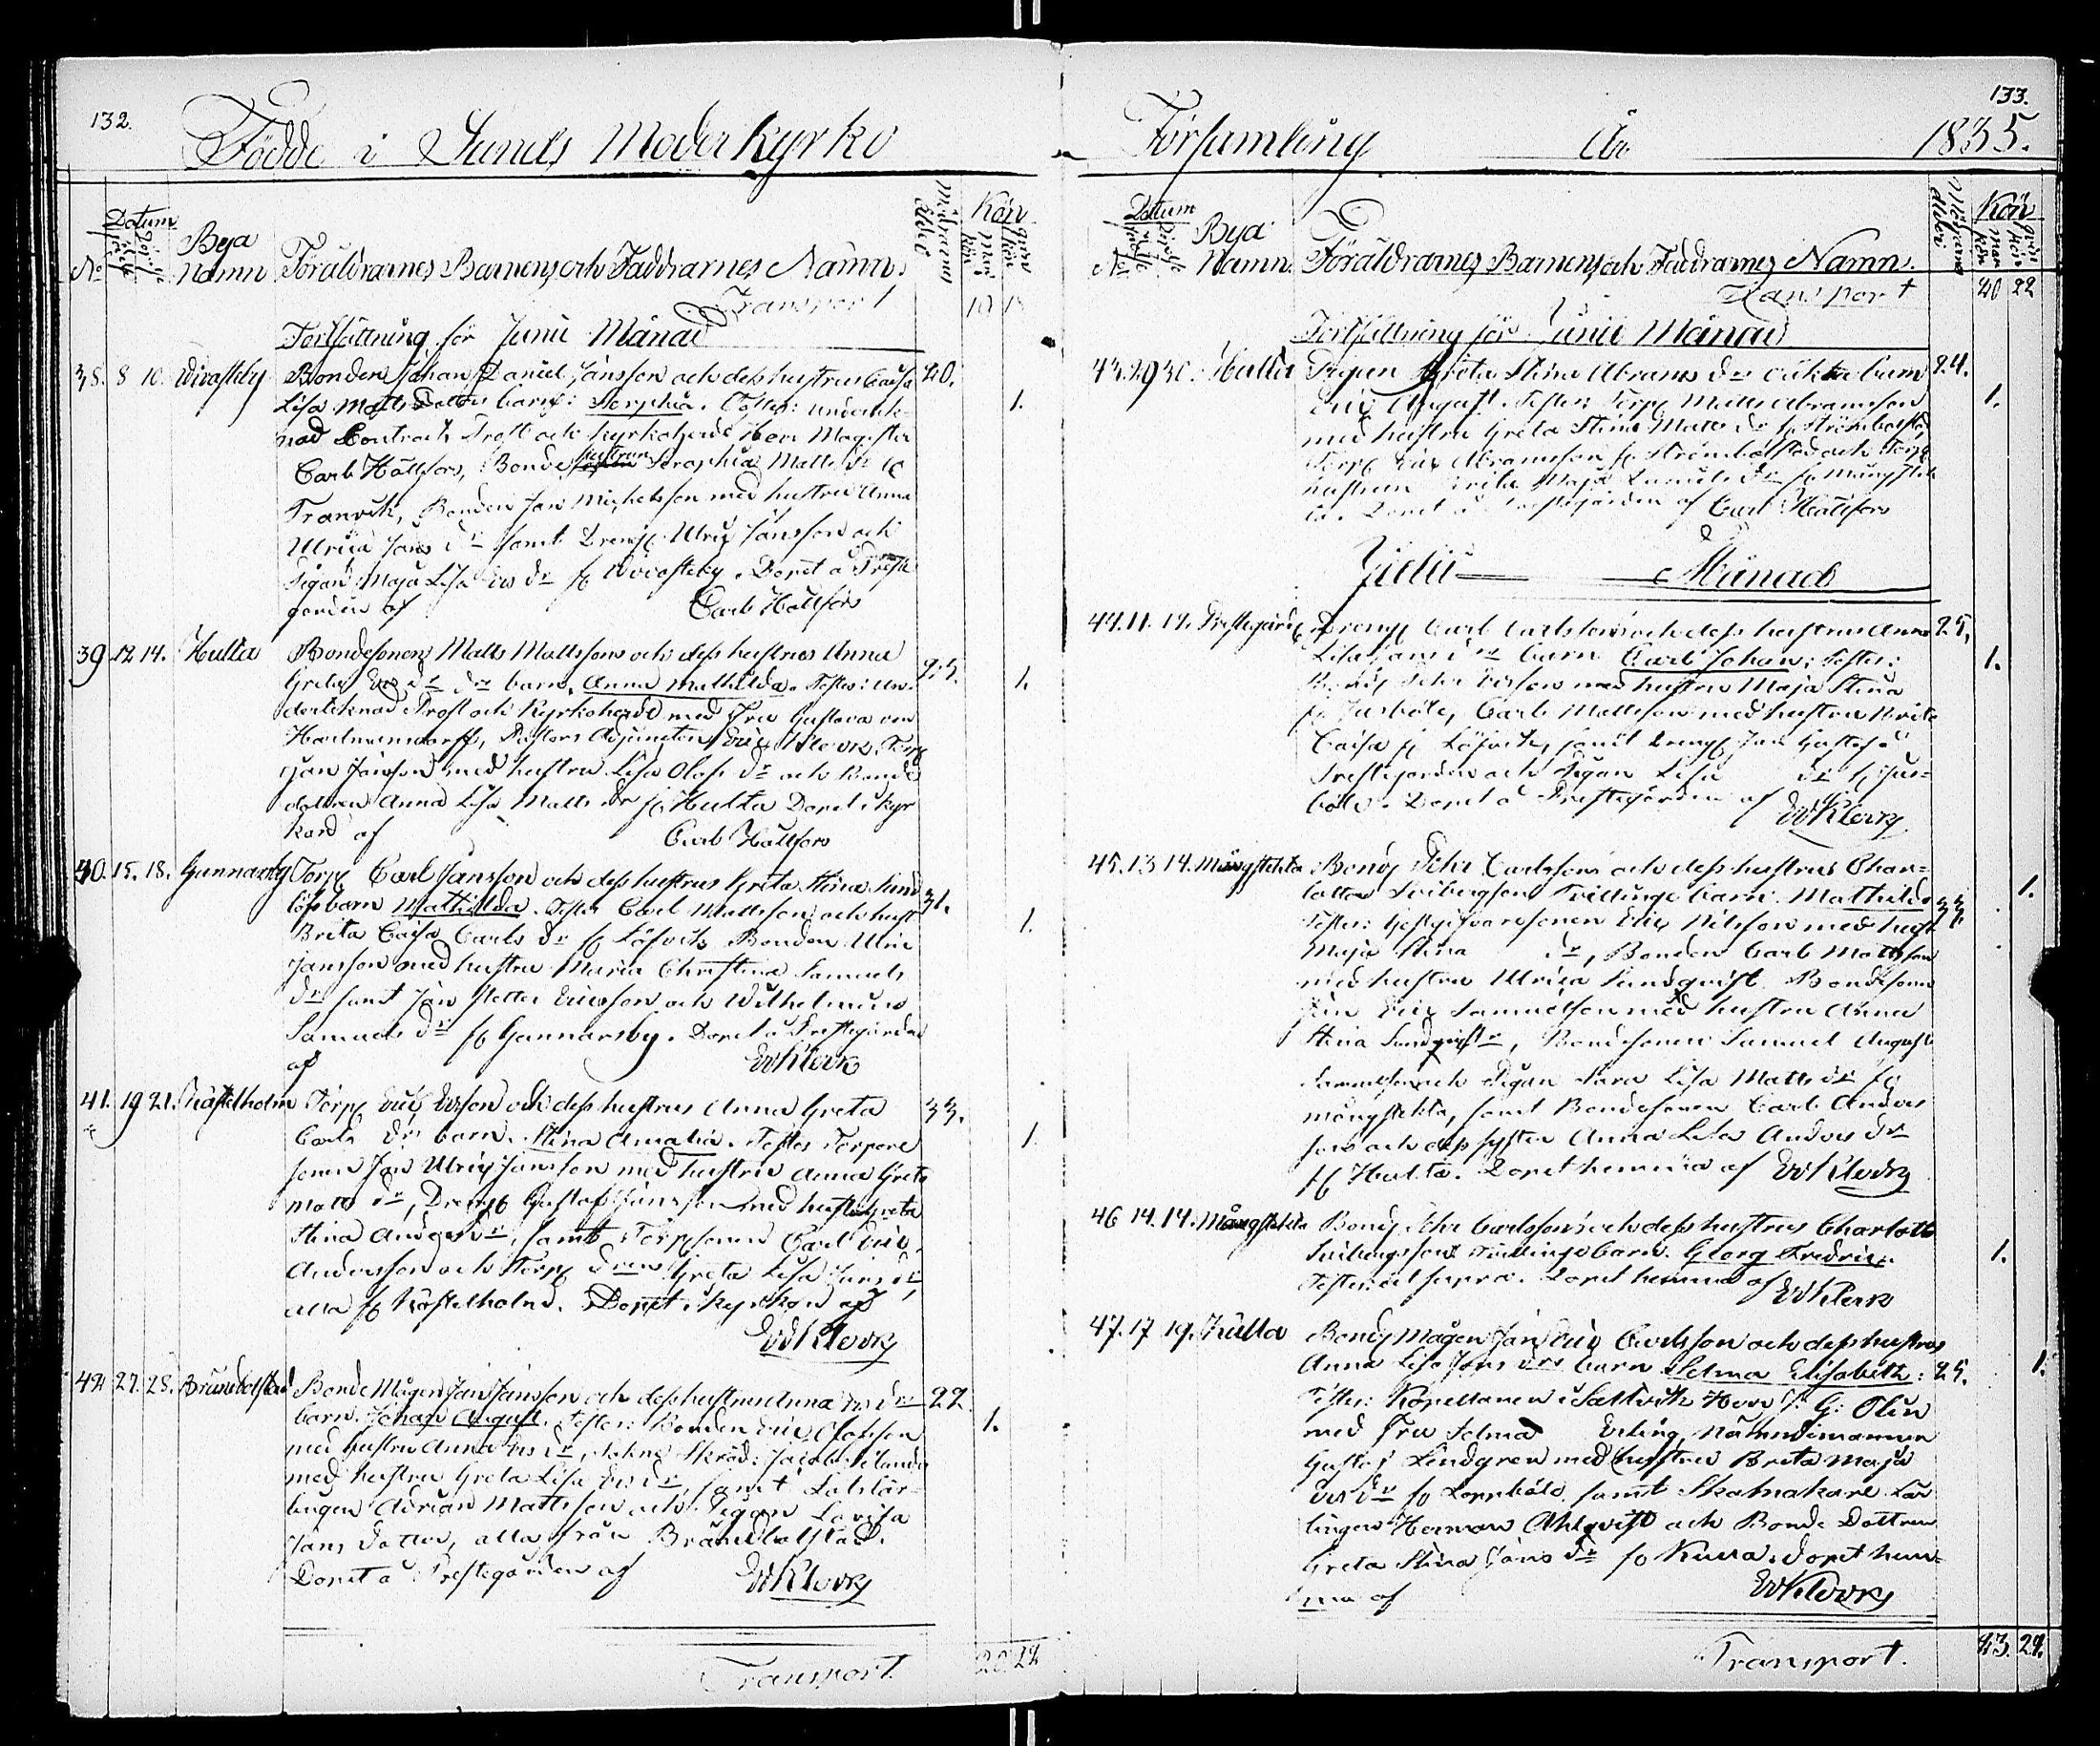 132.
Födde i Sunds Moderkyrko
Datum
No
Bya Namn
Föräldrarnes Barnens och Faddrarnes Namn.
Mödrarnes ålder
Kön
Transport
Fortsättning för Junii Månad
38. 8 10. Wivasteby Bonden Johan Daniel Jansson och dess hustrus Caisa 20.
Lisa Matts Dotters barn: Seraphia. Testes: undertek- 1.
nad Contracts Prost och Kyrkoherde Herr Magister
Carl Hällfors, Bonde hustrun Seraphia Matts dr
Tranvik, Bonden Jan Mickelsson med hustru Anna
Ulrica Jans dr samt Dreng Ulric Jansson och
Pigan Maja Lisa Ers dr fr Wivasteby. Döpt å Preste
gården af Carl Hällfors
39 12 14. Hulta Bondesonen Matts Mattssons och dess hustrus Anna
Greta Ers drs barn. Anna Mathilda. Testes: un- 1.
derteknad Prost och Kyrkoherde med Fru Gustava von
Hartmansdorff, Pastors Adjuncten Eric Klerck, Torp
Jan Jansson med hustru Lisa Olofs dr och Bonde
dottren Anna Lisa Matts dr fr Hulta Döpt i Kyr
kan af Carl Hällfors
40. 15. 18. Gunnarsby Torp Carl Jansson och dess hustrus Greta Stina Sund
löfs barn Mathilda. Testes Carl Mattsson och hust 31.
Brita Caisa Carls dr fr Löfvik Bonden Ulric 1.
Jansson med hustru Maria Christina Samuels
dr samt Jan Petter Ericsson och Wilhelmina
Samuels dr fr Gunnarsby. Döpt å Prestegården
af EWKlerck
41. 19 21. Kastelholm Torp Eric Ersson och dess hustrus Anna Greta 33.
Carls drs barn. Stina Amalia. Testes Torpare 1.
sonen Jan Ulric Jansson med hustru Anna Greta
Matts dr, Dreng Gustaf Jansson med hustru Greta
Stina Anders dr, samt Torpsonen Carl Eric
Andersson och Torp dren Greta Lisa Jans dr,
alla fr Kastelholm. Döpt i Kyrkan af
EWKlerck
42 27. 28. Brändbolstad Bonde Mågen Jan Jansson och dess hustrus Anna Ers drs 22.
barn. Johan August. Testes: Bonden Eric Olofsson 1.
med hustru Anna Ers dr, Sokne Skräd: Jacob Selander
med hustru Greta Lisa Ers dr, samt
lingen Adrian Mattsson och Pigan Lovisa
Jans dotter, alla från Brändbolstad.
Döpt å Prestegården af EWKlerck
Transport. 20. 22
133.
Församling År 1835.
Datum
No
Bya Namn.
Föräldrarnes Barnens och Faddrarnes Namn.
Mödrarnes ålder
Kön
Transport 20 22
Fortsättning för Junii Månad
43. 29 30. Hulta Pigan Greta Stina Abrams drs oäkta barn 24.
Eric August. Testes: Torp Matts Abramsson 1.
med hustru Greta Stina Matts dr fr Strömbolstad,
Torp Eric Abramsson fr Strömbolstad och Torp
hustrun Brita Maja Daniels dr fr Mångstek
ta. Döpt å Prestegården af Carl Hällfors
Julii Månad
44. 11. 14. Prestegård Dreng Carl Carlssons och dess hustrus Anna 25.
Lisa Jans drs barn Carl Johan: Testes: 1.
Bond Pehr Ersson med hustru Maja Stina
fr Jusböle, Carl Mattsson med hustru Brita
Caisa fr Löfvik, samt Dreng Jan Gustaf å
Prestegården och Pigan Lisa dr fr Jus-
böle. Döpt å Prestegården af EWKlerck
45. 13 14. Mångstekta Bond Pehr Carlssons och dess hustrus Char-
lotta Seibergssons Tvillinge barn. Mathilda 33 1.
Testes: Gestgifvaresonen Eric Nilsson med hust
Maja Stina dr, Bonden Carl Mattsson
med hustru Ulrica Sundqvist Bondesonen
Jan Eric Samuelsson med hustru Anna
Stina Sundqvist, Bondesonen Samuel August
Samuelsson och Pigan Sara Lisa Matts dr fr
Mångstekta, samt Bondesonen Carl Anders
son och dess syster Anna Lisa Anders dr
fr Hulta. Döpt hemma af EWKlerck
46 14. 14. Mångstekta Bond Pehr Carlssons och dess hustrus Charlotta
Seibergssons Tvillinge barn. Georg Fredric. 1.
Testes: ut supra. Döpt hemma af EWKlerck
47. 17 19. Kulla Bond Mågen Jan Eric Carlsson och dess hustrus
Anna Lisa Jans drs barn Selma Elisabeth: 25. 1.
Testes: Kapellanen i Saltvik Herr G: Olin
med Fru Selma Erling, Nämndemannen
Gustaf Lindgren med hustru Brita Maja
Ers dr fr samt Skomakare Lär
lingen Herman Ahlqvist och Bonde Dottren
Greta Stina Jans dr fr Kulla. döpt hem-
ma af EWKlerck
Transport. 23. 24.